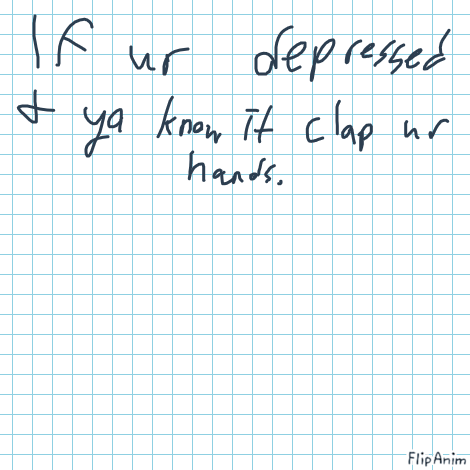 If ur depressed
& ya know it clap ur
hands.
FlipAnim